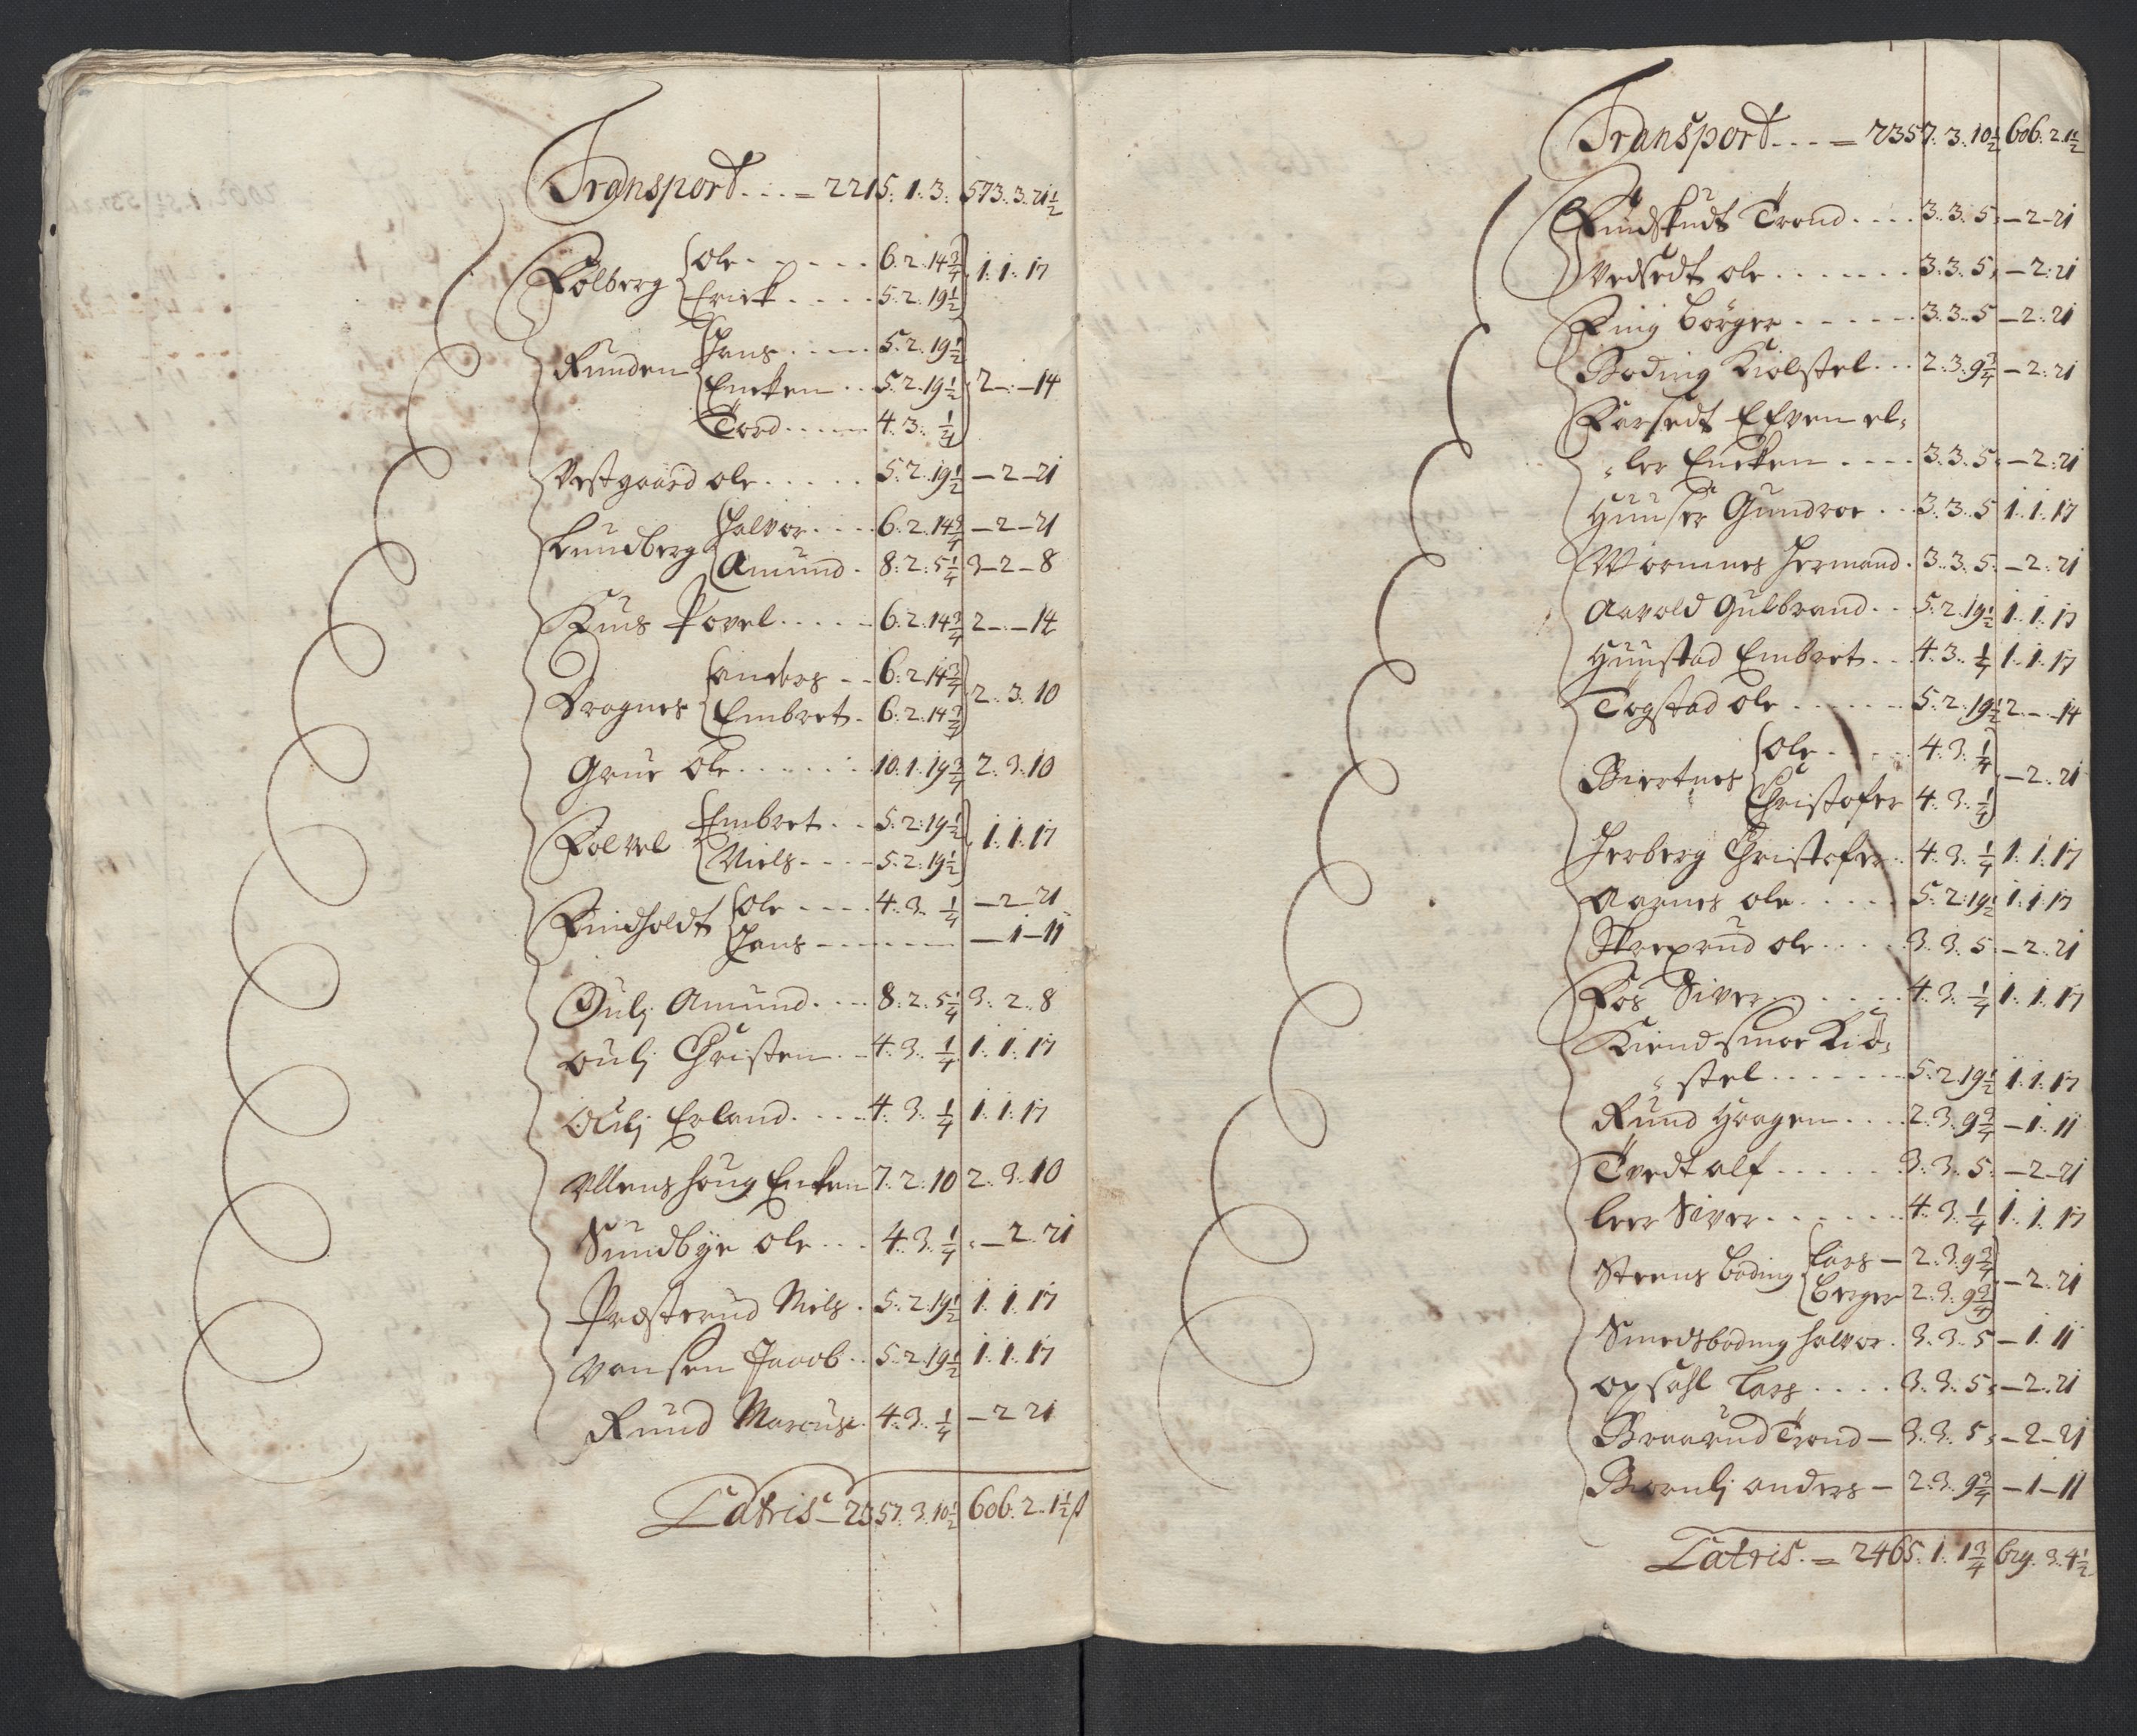 Transport . . . = 2215. 1. 3. 573. 3. 21½
Kolberg Ole - - - - - 6. 2. 14¾
Erick - - - - 5. 2. 19½ 1. 1. 17
Runden Hans - - - - 5. 2. 19½
Encken - - 5. 2. 19½ 2 - - 14
Tord - - - - 4. 3. ¼
Vestgaard ole - - - - - 5. 2. 19½ - 2 - 21
Lundberg Halvor - - - 6. 2. 14¾ - 2 - 21
Amund - 8. 2. 5¼ 3 - 2 - 8
Povel - - - - - 6. 2. 14¾ 2 - - 14
Dragnes anders - - 6. 2. 14¾
Embret - 6. 2. 14¾ 2. 3. 10
Grue Ole - - - - - - 10. 1. 19¾ 2. 3. 10
Kolvel Embret - - 5. 2. 19½
Niels - - - - 5. 2. 19½ 1. 1. 17
Kindholdt Ole - - - - 4. 3. ¼ - 2 - 21
Hans - - - - - - - - 1 - 11
Oulj Amund - - - - 8. 2. 5¼ 3. 2. 8
oulj Christen - - 4. 3. ¼ 1. 1. 17
Oulj Erland - - - - 4. 3. ¼ 1. 1. 17
Ullenshoug Enken 7. 2. 10 2. 3. 10
Sundbye ole - - - 4. 3. ¼ - 2. 21
Præsterud Niels - 5. 2. 19½ 1. 1. 17
Vansen Jacob - - 5. 2. 19½ 1. 1. 17
Rund Marcus - 4. 3. ¼ - 2 21
Latris - 2357. 3. 10½ 606. 2. 1½
Transport . . . = 2357. 3. 10½ 606. 2. 1½
Trond - - - - 3. 3. 5 - 2 - 21
Vedsedt ole - - - - - - - 3. 3. 5 - 2. 21
Ring Börger - - - - - 3. 3. 5 - 2. 21
Boding Kiolstel - - - 2. 3. 9¾ - 2. 21
Karsedt Efven el-
ler Encken - - - - 3. 3. 5 - 2. 21
Huuser Gundroe - - 3. 3. 5 1. 1. 17
Wormnes Hermand - 3. 3. 5 - 2. 21
Aavold Gulbrand - - 5. 2. 19½ 1. 1. 17
Huustad Embret - - - 4. 3. ¼ 1. 1. 17
Togstad Ole - - - - - - 5. 2. 19½ 2. - - 14
Biertnes Ole - - - - - 4. 3. ¼
Christofer 4. 3. ¼ - 2. 21
Herberg Christofer - - 4. 3. ¼ 1. 1. 17
Aarnes ole - - - - - 5. 2. 19½ 1. 1. 17
Skreprud ole - - - - 3. 3. 5 - 2. 21
Fos Siver - - - - - - 4. 3. ¼ 1. 1. 17
Kiendsmoe Kiö-
stel - - - - - - - 5. 2. 19½ 1. 1. 17
Rund Haagen - - - - 2. 3. 9¾ - 1. 11
Tvedt alf - - - - - 3. 3. 5 - 2 - 21
Leer Siver - - - - - - 4. 3. ¼ 1. 1. 17
Steens boding Lars - 2. 3. 9¾
Berger 2. 3. 9¾ - 2. 21
Smedsboding Halvor - 3. 3. 5 - 1. 11
opsahl Lars - - - - 3. 3. 5 - 2. 21
Braarud Trond - 3. 3. 5 - 2 - 21
Biornlj anders - 2. 3. 9¾ - 1 - 11
Latris . = 2465. 1. 1¾ 629. 3. 4½